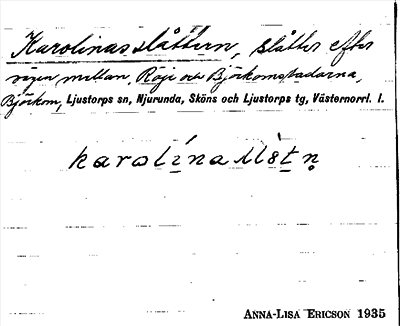 Karolinasslåttern, slåtter efter
vägen mellan Röje och Björkomsbodarna,
Björkom, Ljustorps sn, Njurunda, Sköns och Ljustorps tg, Västernorrl. l.
karolína
ANNA-LISA ERICSON 1935